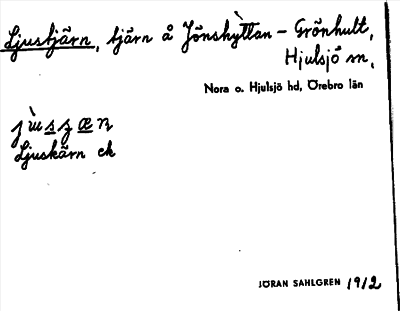 Ljustjärn, tjärn å Jönshyttan - Grönhult,
Hjulsjö sn,
Nora o. Hjulsjö hd, Örebro län
Ljuskärn ek
JÖRAN SAHLGREN 1912